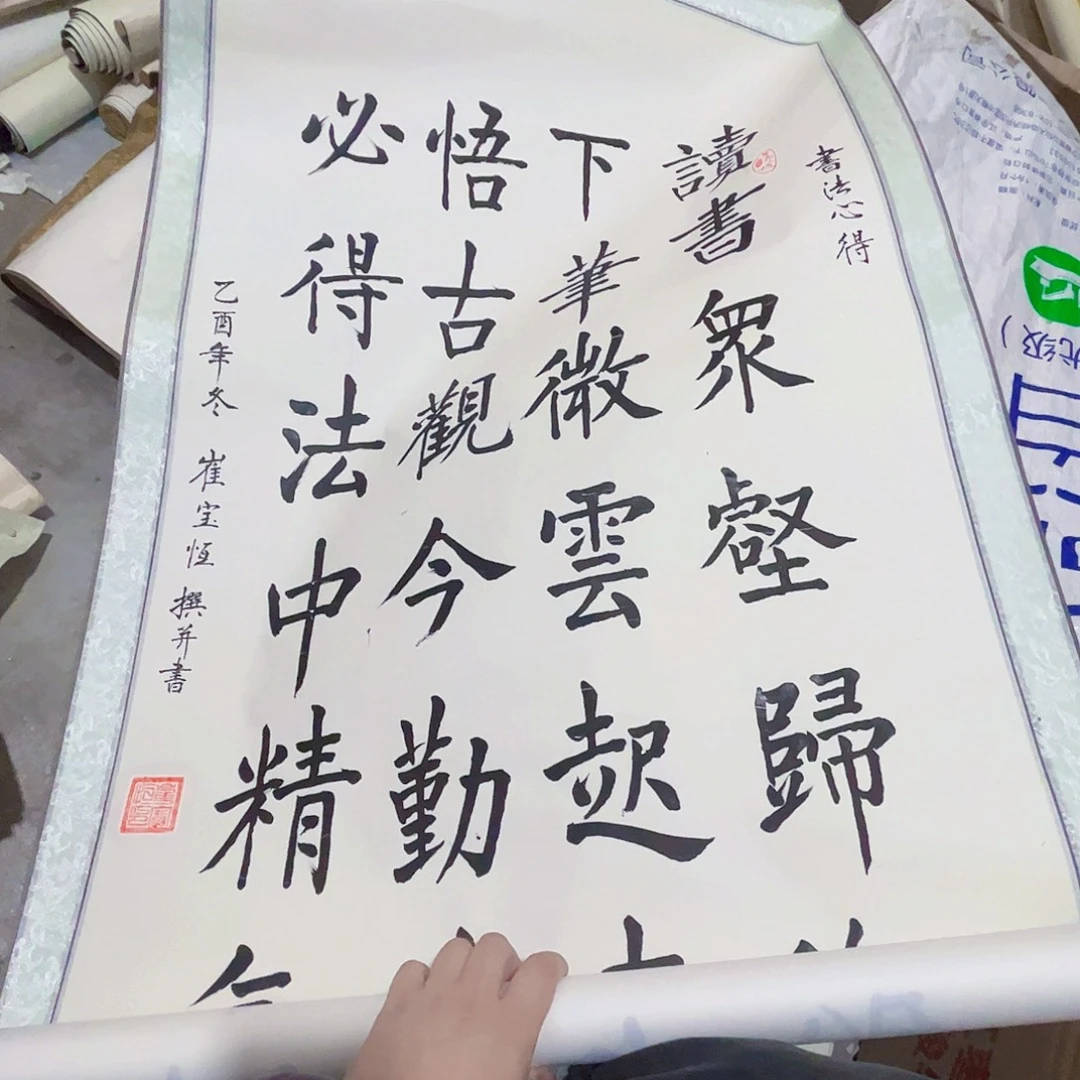 書法心得
讀書眾壑歸
下筆微雲起
悟古觀今勤
必得法中精
乙酉年冬 崔宝恒 撰并書